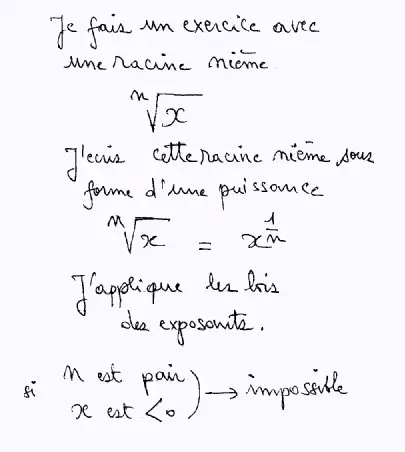 Je fais un exercice avec
une racine nième
ⁿ√x
J'écris cette racine nième sous
forme d'une puissance
ⁿ√x = x^(1/n)
J'applique les lois
des exposants.
si n est pair
x est <0 ) → impossible